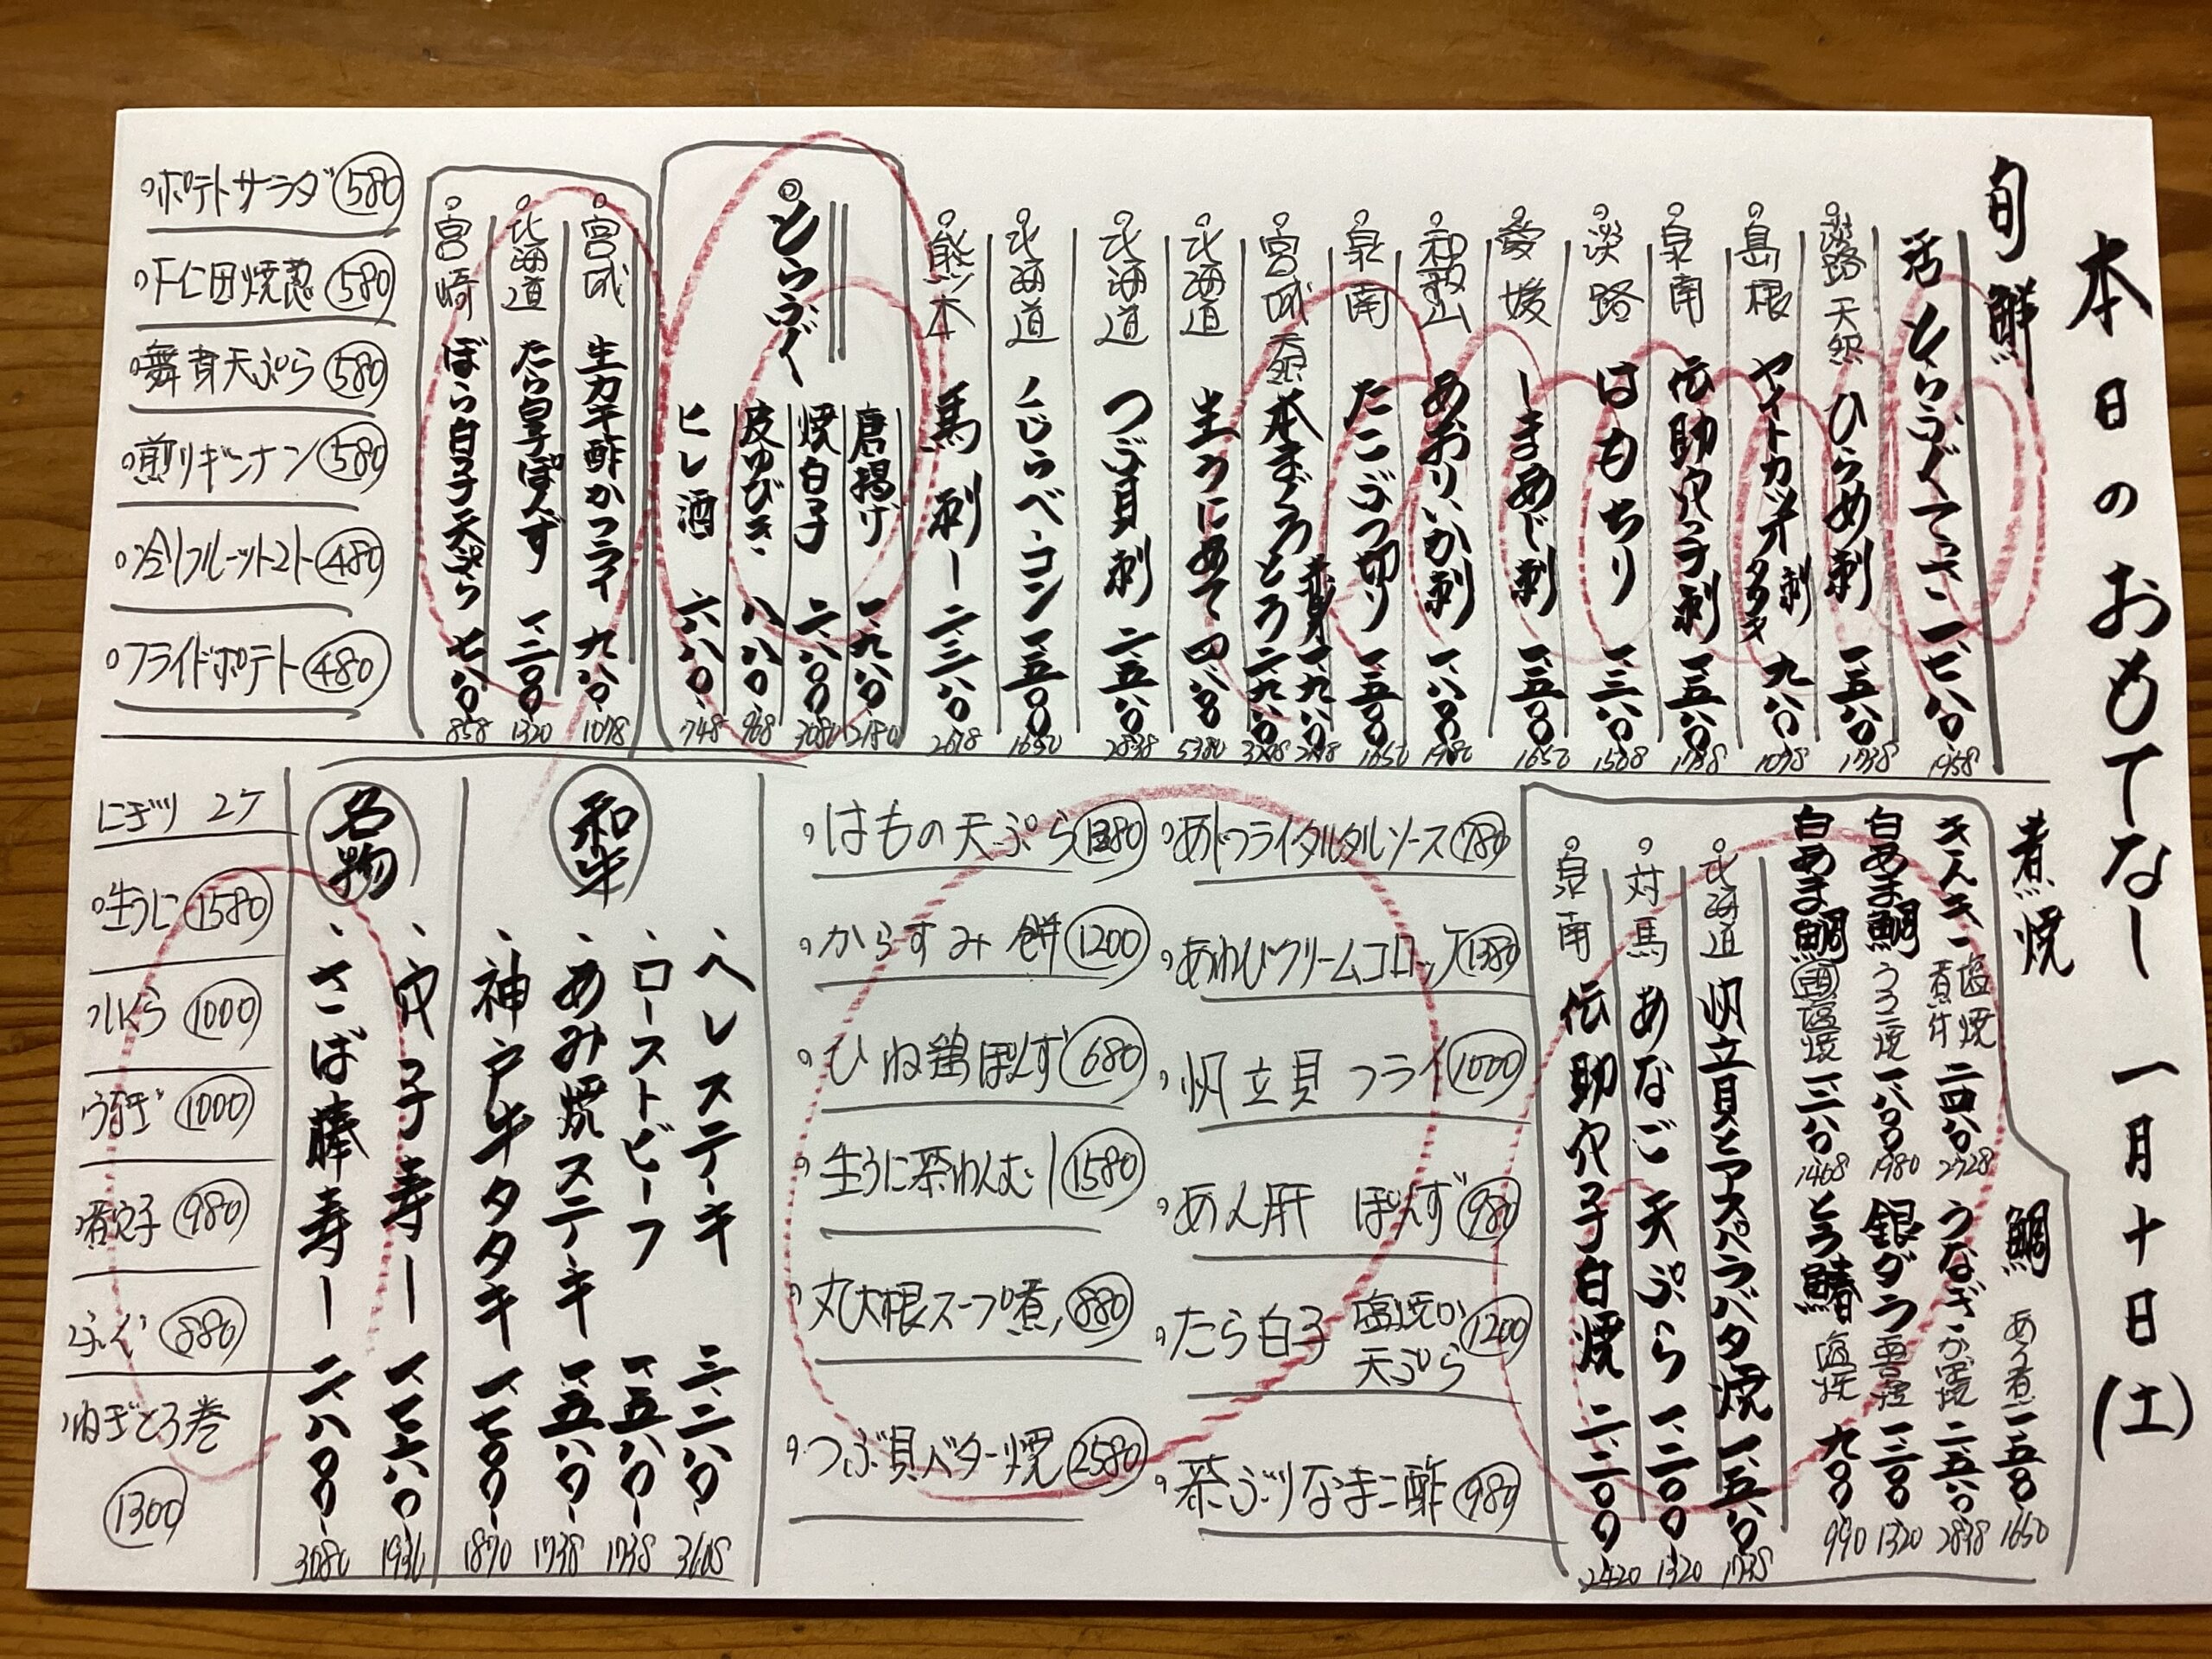 本日のおもてなし 一月十日(土)
旬鮮
活 とらふぐてっさ 一、七八〇 1958
淡路 天然 ひらめ刺 一、五八〇 1738
島根 ヤイトカツオ 刺 タタキ 九八〇 1078
泉南 伝助穴子刺 一、五八〇 1738
淡路 はもちり 一、三八〇
愛媛 しまあじ刺 一、五〇〇 1650
和歌山 あおりいか刺 一、八〇〇 1980
泉南 たこぶつ切り 一、五〇〇 1650
宮城 天然 本まぐろ 赤身 一、九八〇
とろ 二、九八〇
北海道 生うにあて 四、八〇
北海道 つぶ貝刺 二、五八〇 2838
北海道 くじらベーコン 一、五〇〇 1650
熊本 馬刺し 二、三八〇
とらふぐ
唐揚げ 一、九八〇
焼白子 二、八〇〇 3080
皮ゆびき 八八〇 968
ヒレ酒 六八〇 748
宮城 生カキ酢かフライ 九八〇 1078
北海道 たら白子ぽんず 一、二〇〇 1320
宮崎 ぼら白子天ぷら 七八〇 858
ポテトサラダ 580
下仁田焼葱 580
舞茸天ぷら 580
煎りギンナン 580
冷しフルーツトマト 480
フライドポテト 480
煮焼
鯛 あら煮 一、五〇〇 1650
キンキ 塩焼 煮付 二、四八〇 2728
うなぎ かば焼 二、五八〇 2838
白あま鯛 うろこ焼 一、八〇〇 1980
銀ダラ 西京焼 一、二〇〇 1320
白あま鯛 頭 塩焼
とろ鯖 塩焼 九〇〇 990
北海道 帆立貝とアスパラバタ焼 一、五八〇 1738
対馬 あなご天ぷら 一、二〇〇 1320
泉南 伝助穴子白焼 二、二〇〇 2420
あじフライタルタルソース 780
あわびクリームコロッケ 1380
帆立貝 フライ 1000
あん肝 ぽんず 980
たら白子 塩焼か天ぷら 1200
茶ぶりなまこ酢 980
はもの天ぷら
からすみ餅 1200
ひね鶏ぽんず 680
生うに茶わんむし 1580
丸大根スープ煮 880
つぶ貝バター焼 2580
和牛
ヘレステーキ 三、二八〇
ローストビーフ 一、五八〇 1738
あみ焼ステーキ 一、五八〇 1738
神戸牛タタキ 一、七〇〇 1870
名物
穴子寿し 一、七六〇 1936
さば棒寿し 二、八〇〇 3080
にぎり 2ケ
生うに 1580
いくら 1000
うなぎ 1000
煮穴子 980
ふぐ 880
ねぎとろ巻
1300